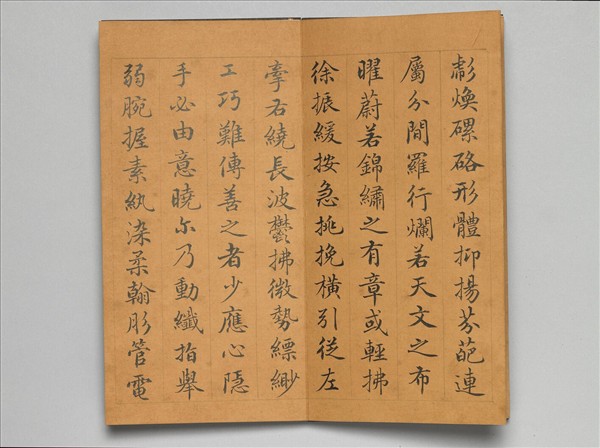 彪煥磥硌形體抑揚芬葩連
屬分間羅行爛若天文之布
曜蔚若錦繡之有章或輕拂
徐振緩按急挑挽橫引從左
牽右繞長波鬱拂微勢縹緲
工巧難傳善之者少應心隱
手必由意曉尔乃動纖指舉
弱腕握素紈染柔翰彤管電